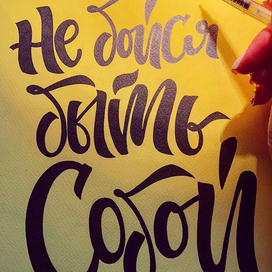 Не бойся
быть
Собой